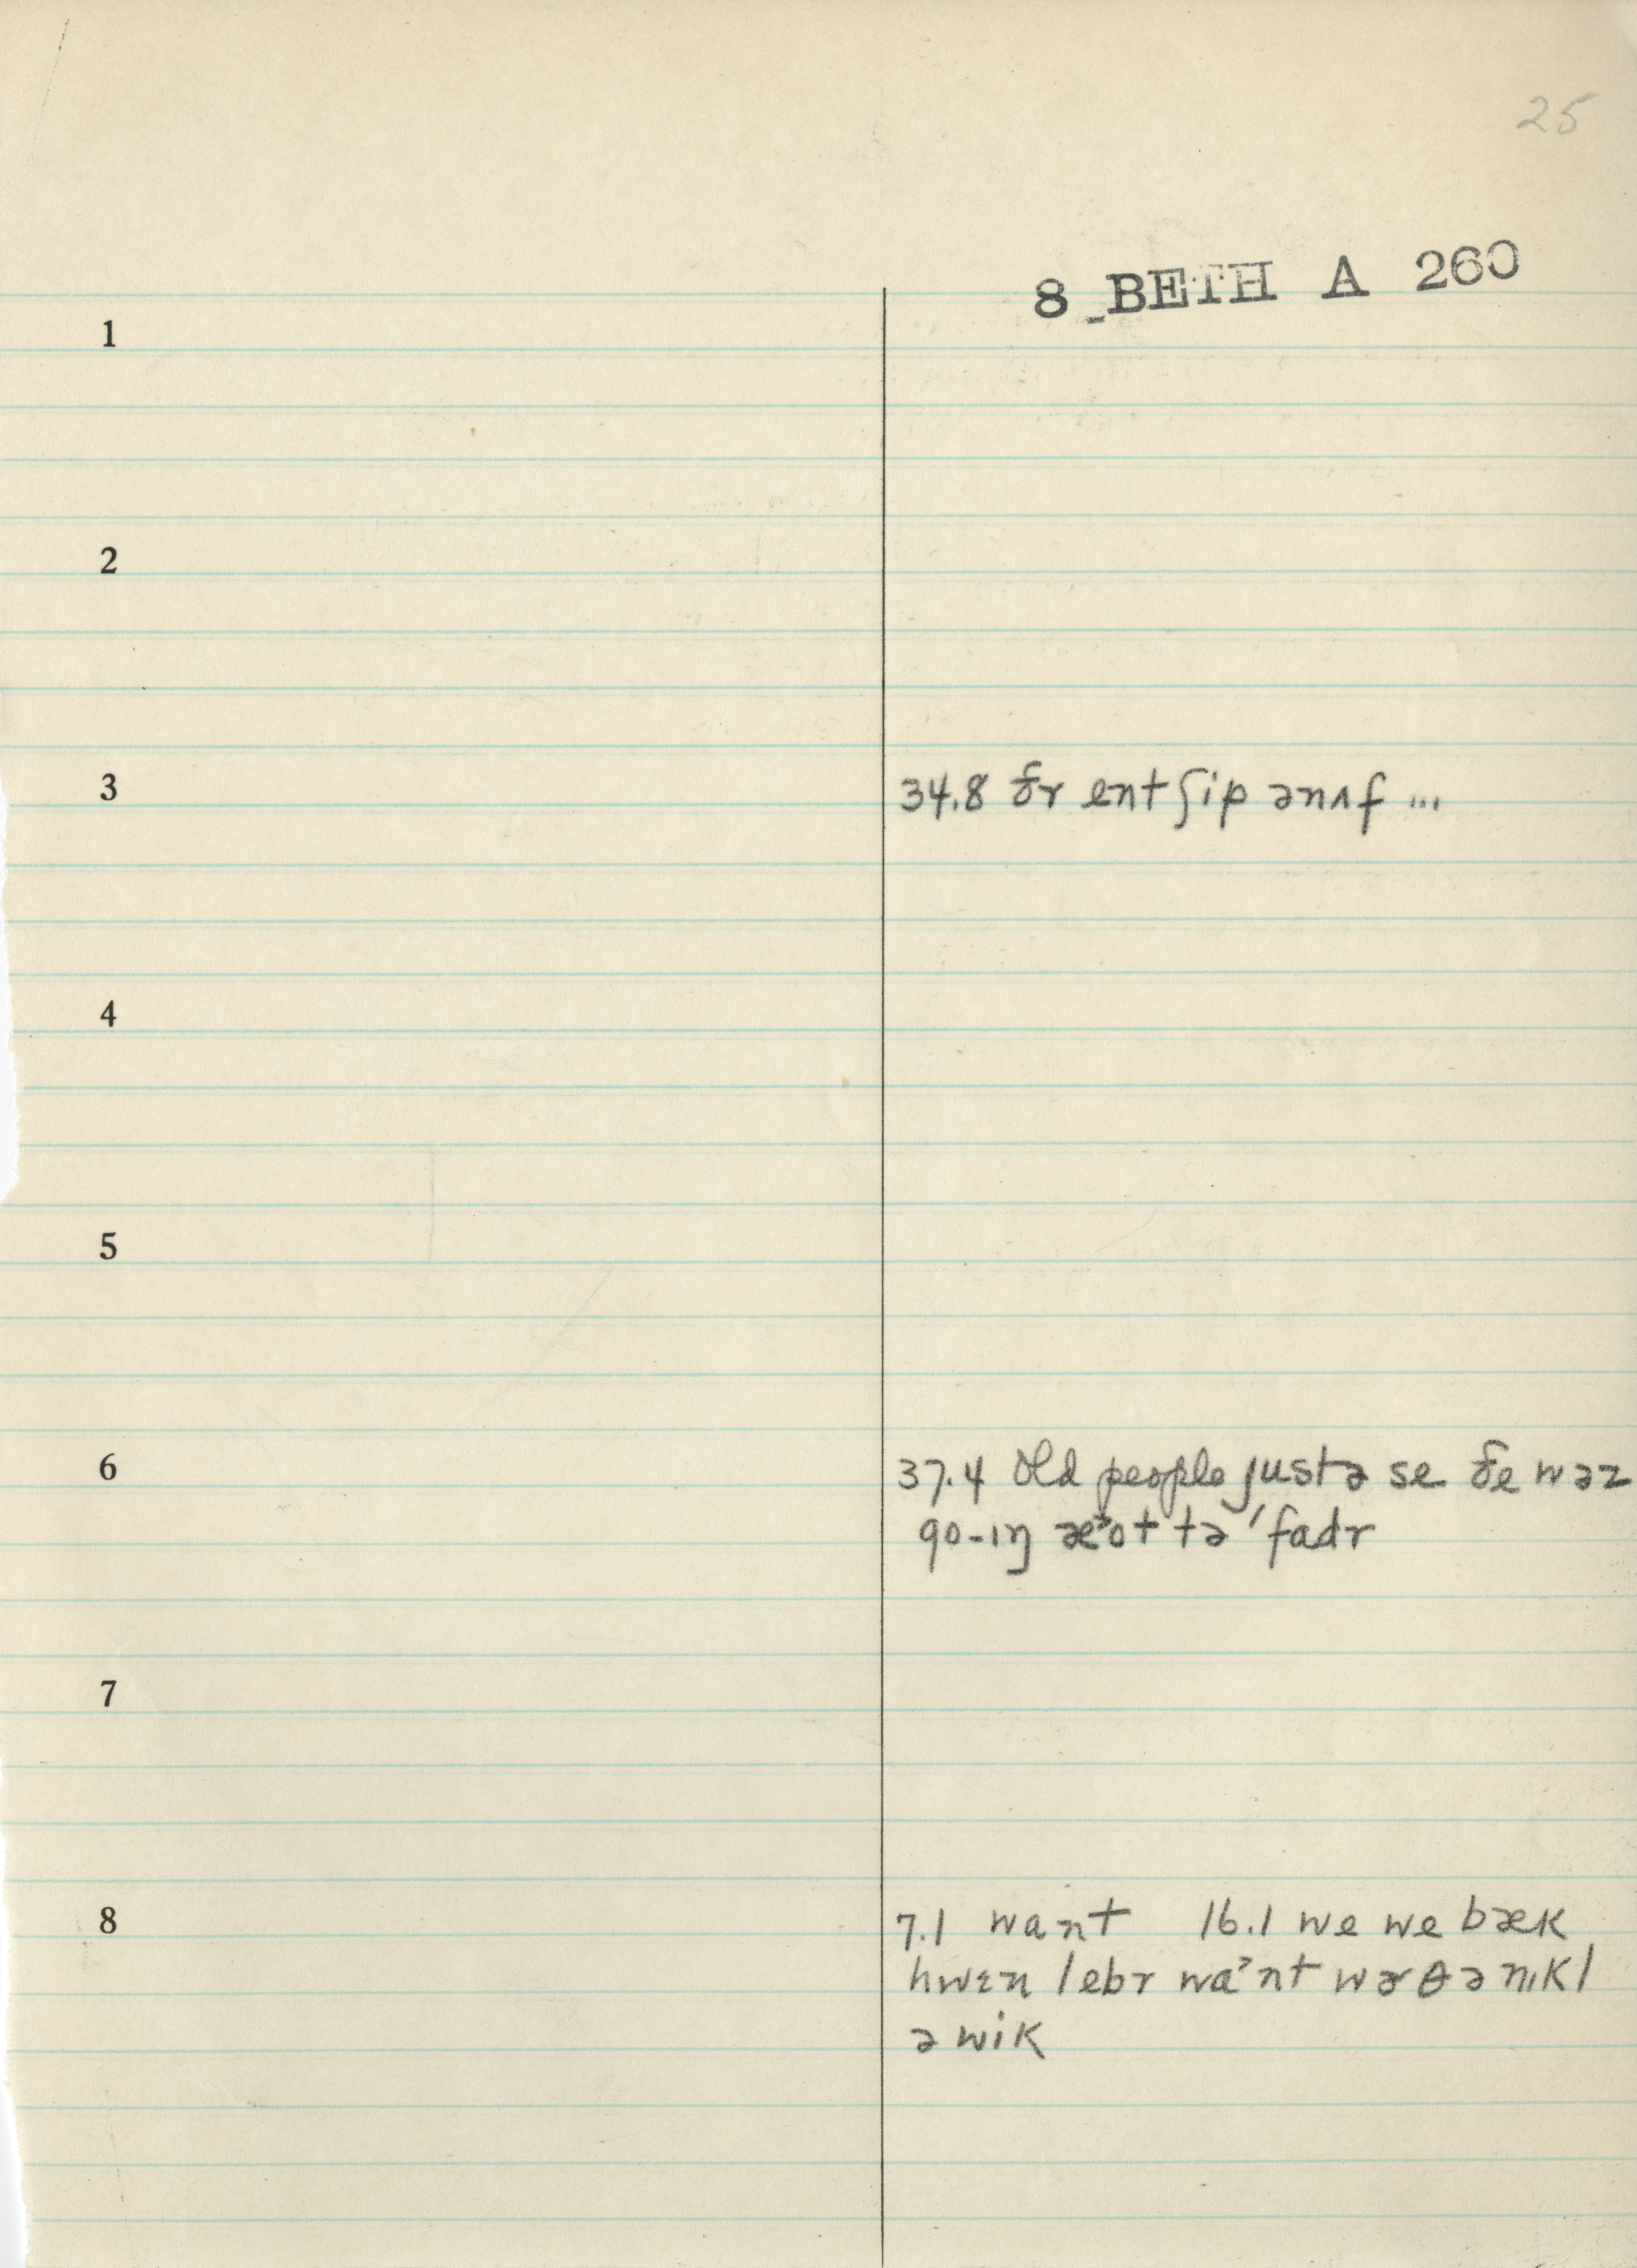 25
8 BETH A 260
1
2
3 34.8 ðr ent ʃip ənʌf ...
4
5
6 37.4 Old people justə se ðe wəz
go-ɪŋ æ˃ot tə ˈfadr
7
8 7.1 want 16.1 we we bæk
hwɛn lebr wa˃nt wɚθ ə nɪkl
ə wik